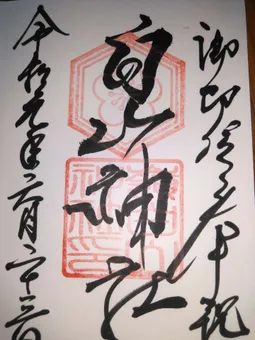 御即位奉祝
白山神社
令和元年六月二十三日